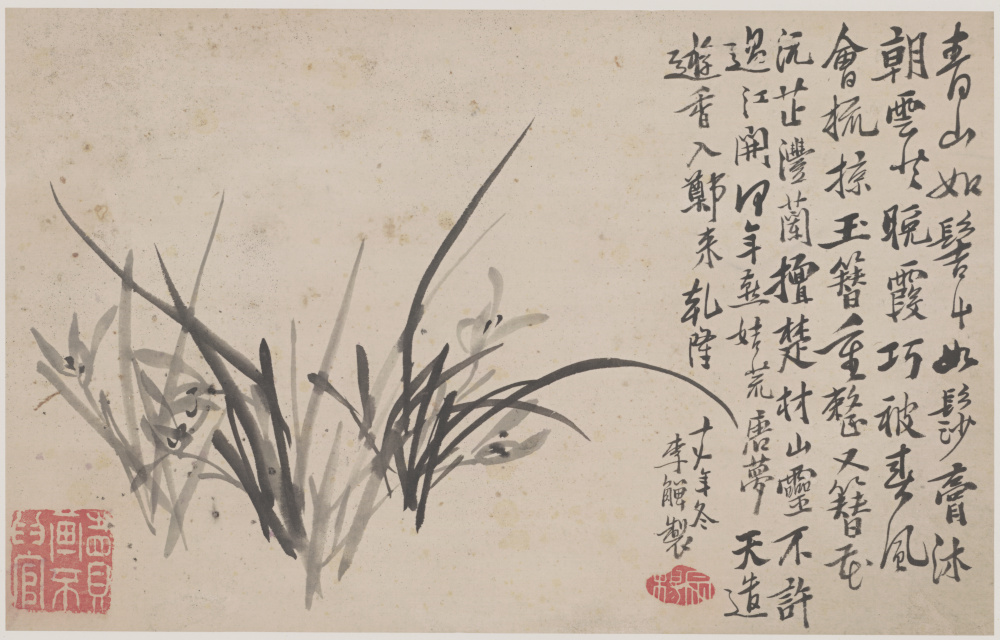 青山如髻如膏沐
朝雲共晚霞巧被春風
會梳掠玉簪重整又簪花
沅芷灃蘭擅楚材山靈不許
過江開何年燕姞荒唐夢天造
遊香入鄭來乾隆
十年冬
李觶製